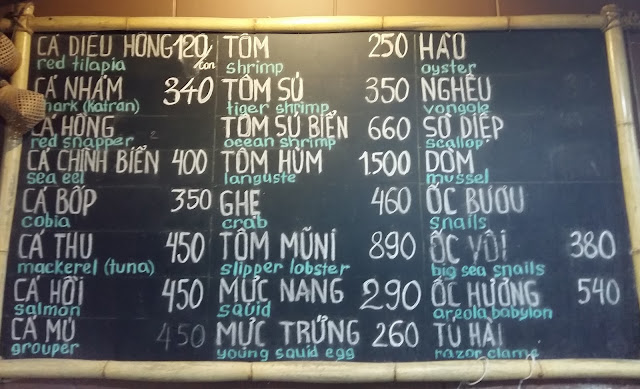 CÁ DIÊU HỒNG 120
red tilapia
CÁ NHÁM 340
shark (katran)
CÁ HỒNG
red snapper
CÁ CHÌNH BIỂN 400
sea eel
CÁ BỐP 350
cobia
CÁ THU 450
mackerel (tuna)
CÁ HỒI 450
salmon
CÁ MÚ 450
grouper
TÔM 250
shrimp
TÔM SÚ 350
tiger shrimp
TÔM SÚ BIỂN 660
ocean shrimp
TÔM HÙM 1.500
languste
GHẸ 460
crab
TÔM MŨNI 890
slipper lobster
MỰC NANG 290
squid
MỰC TRỨNG 260
young squid egg
HÀO
oyster
NGHÊU
vongole
SÒ DIỆP
scallop
DÒM
mussel
ỐC BƯƠU
snails
ỐC VÒI 380
big sea snails
ỐC HƯƠNG 540
areola babylon
TU HÀI
razor clams